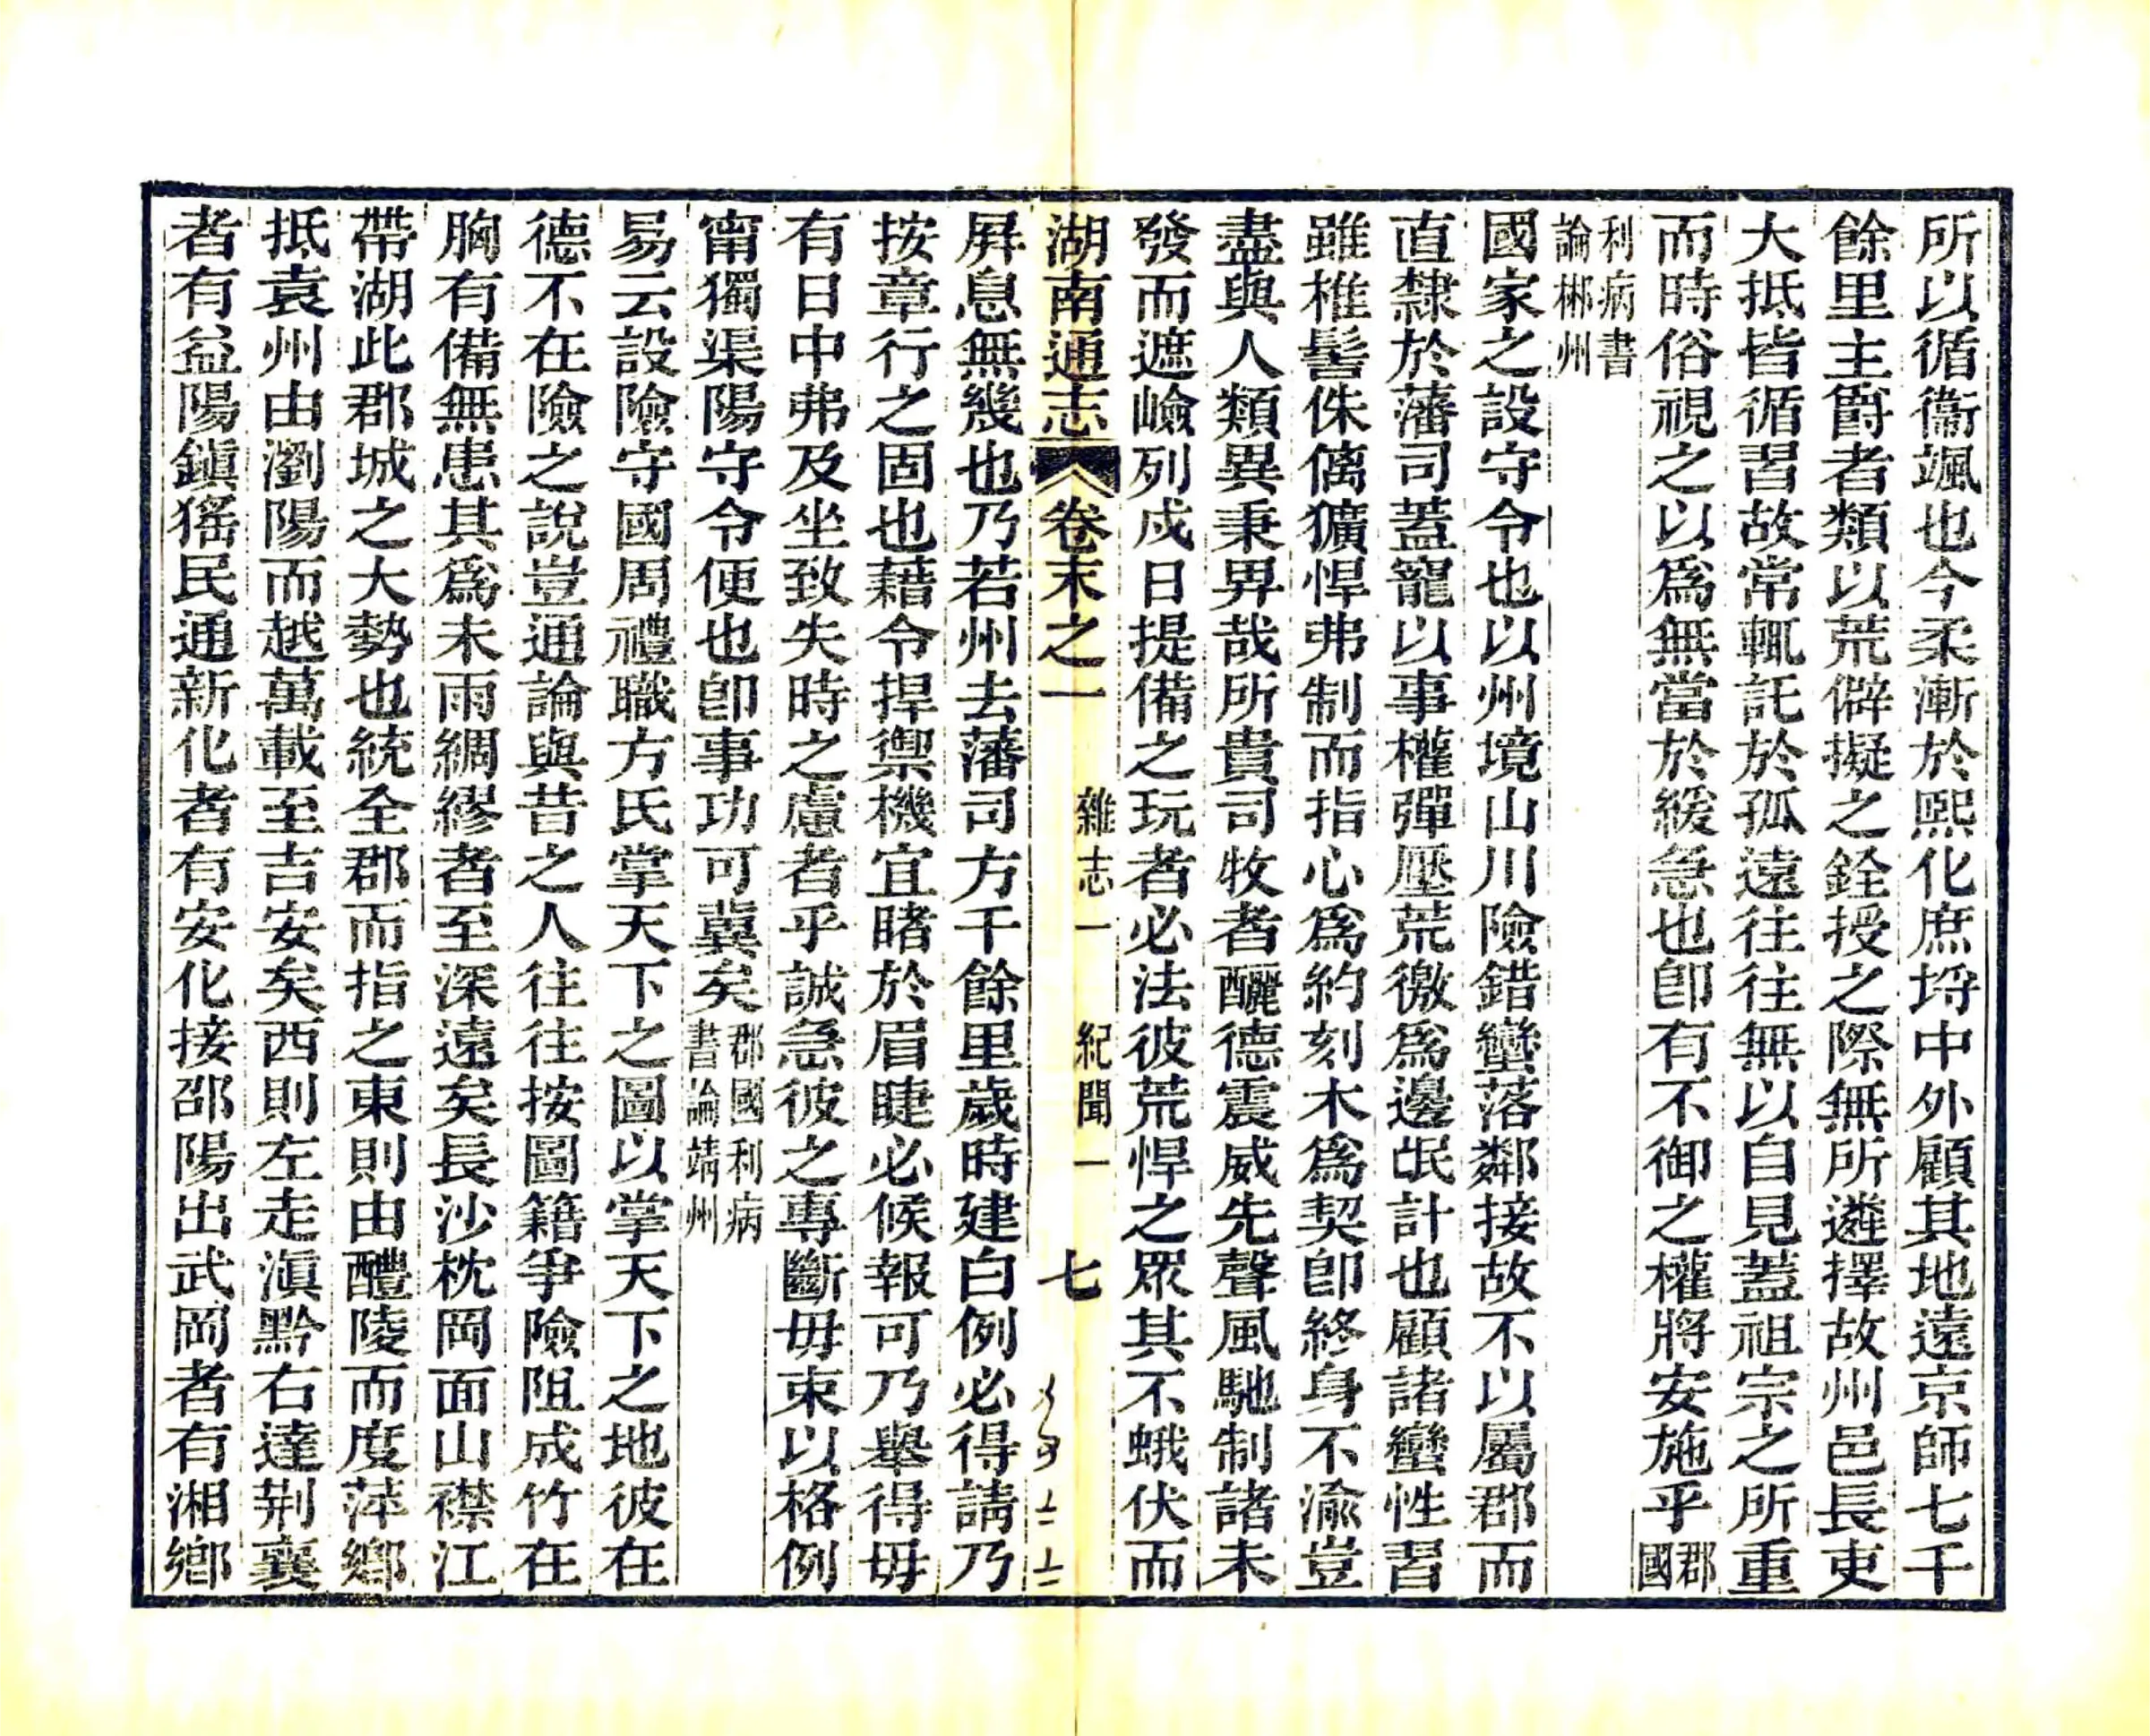 所以循衞颯也今柔漸於熙化庶埒中外顧其地遠京師七千
餘里主爵者類以荒僻擬之銓授之際無所遴擇故州邑長吏
大抵皆循習故常輒託於孤遠往往無以自見蓋祖宗之所重
而時俗視之以爲無當於緩急也卽有不御之權將安施乎郡國
利病書論郴州
國家之設守令也以州境山川險錯蠻落鄰接故不以屬郡而
直隸於藩司蓋寵以事權彈壓荒徼爲邊氓計也顧諸蠻性習
雖椎髻侏𠌯獷悍弗制而指心爲約刻木爲契卽終身不渝豈
盡與人類異秉畀哉所貴司牧者釃德震威先聲風馳制諸未
發而遮嶮列戍日提備之玩者必法彼荒悍之眾其不蛾伏而
湖南通志 卷末之一 雜志一 紀聞一 七
屛息無幾也乃若州去藩司方千餘里歲時建白例必得請乃
按章行之固也藉令捍禦機宜睹於眉睫必候報可乃舉得毋
有日中弗及坐致失時之慮者乎誠急彼之專斷毋束以格例
甯獨渠陽守令便也卽事功可冀矣郡國利病書論靖州
易云設險守國周禮職方氏掌天下之圖以掌天下之地彼在
德不在險之說豈通論與昔之人往往按圖籍爭險阻成竹在
胸有備無患其爲未雨綢繆者至深遠矣長沙枕岡面山襟江
帶湖此郡城之大勢也統全郡而指之東則由醴陵而度萍鄉
抵袁州由瀏陽而越萬載至吉安矣西則左走滇黔右達荆襄
者有益陽鎭猺民通新化者有安化接邵陽出武岡者有湘鄉